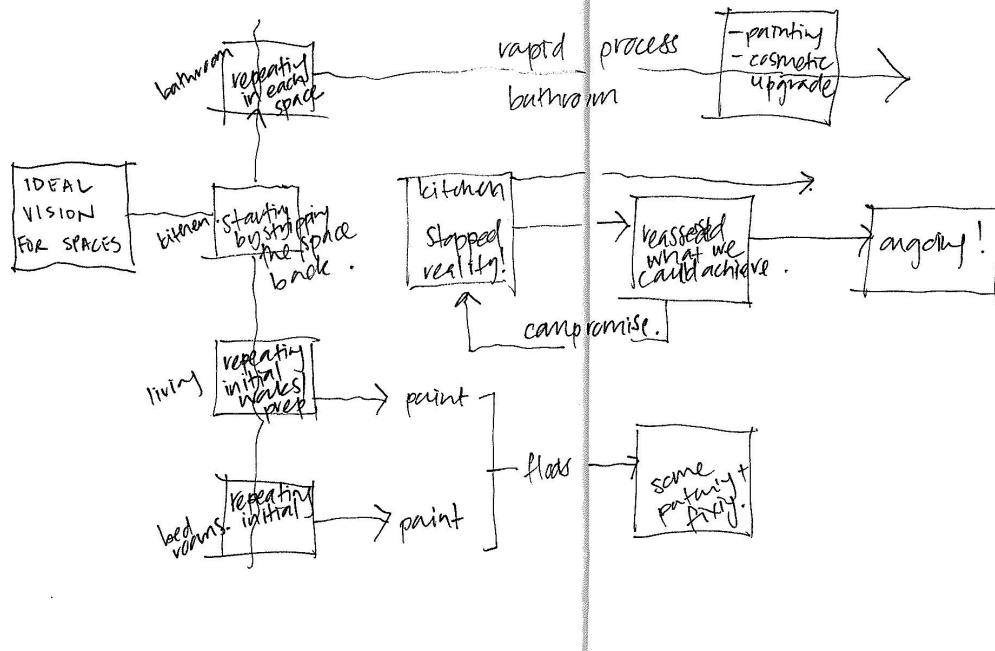 bathroom
repeating
in each
space
rapid process
bathroom
- painting
- cosmetic
upgrade
IDEAL
VISION
FOR SPACES
kitchen.
starting
by stripping
the space
back.
kitchen
stopped
reality!
reassessed
what we
could achieve.
ongoing!
compromise.
living
repeating
initial
works
prep
paint
floors
some
patching +
fixing.
bed
rooms.
repeating
initial
paint